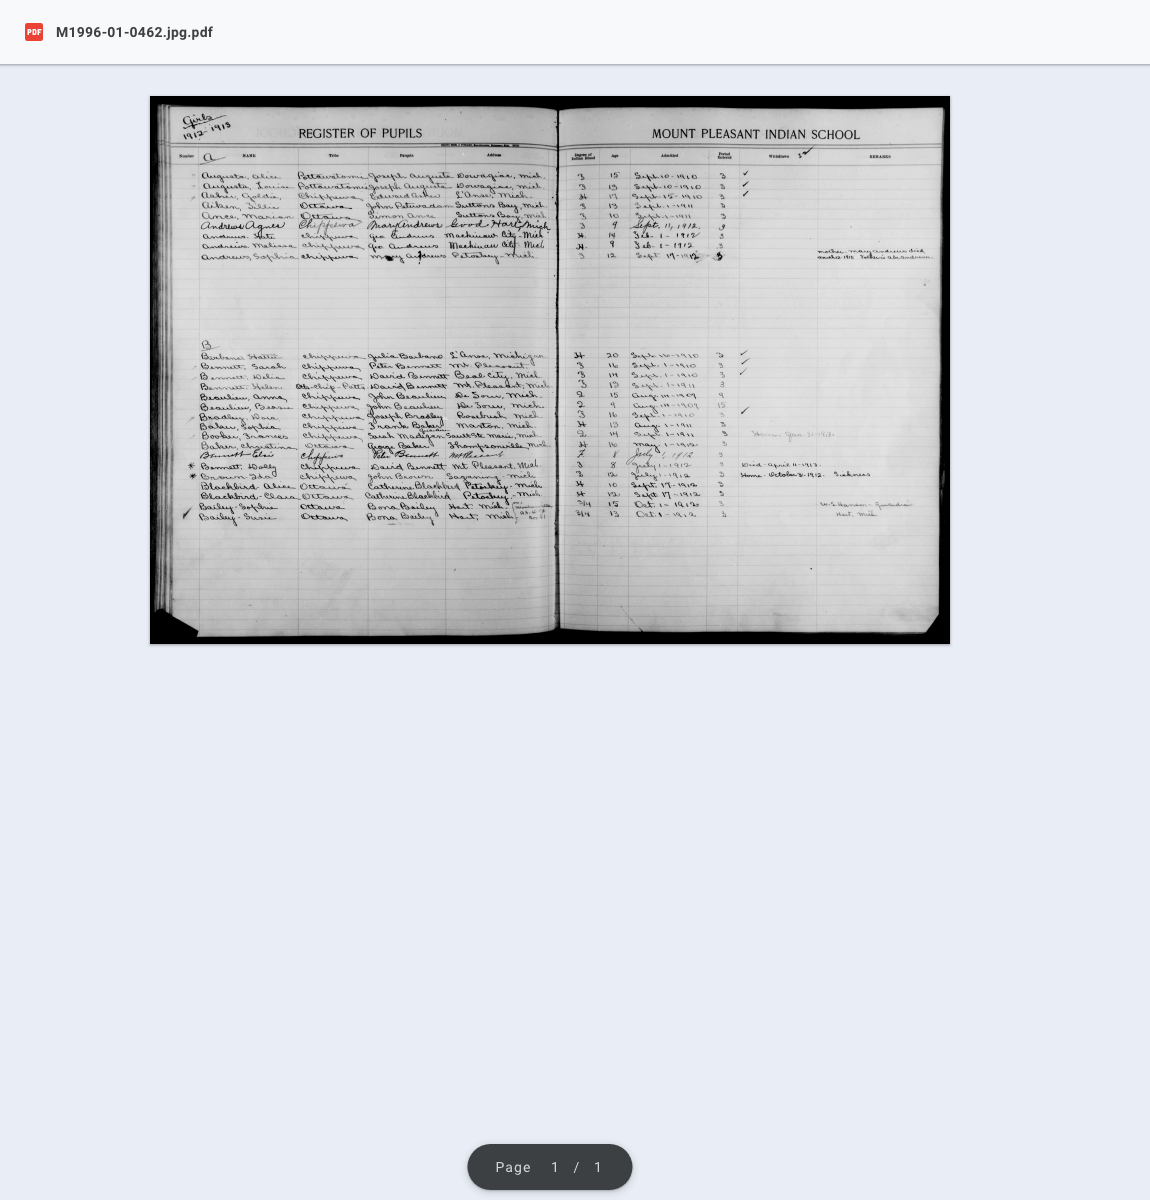 M1996-01-0462.jpg.pdf
Girls
1912-1913
REGISTER OF PUPILS
MOUNT PLEASANT INDIAN SCHOOL
Number NAME Tribe People Address Degree of Indian Blood Age Admitted Period Entered Withdrawn REMARKS
A
Augusta, Alice Pottawatomi Joseph Augusta Dowagiac, Mich. 3 15 Sept. 10-1910 3 ✓
Augusta, Louise Pottawatomi Joseph Augusta Dowagiac, Mich. 3 13 Sept. 10-1910 3 ✓
Goldie, Chippewa Edward L'Anse, Mich. 4 17 Sept. 15-1910 3 ✓
Aiken, Ottawa John Suttons Bay, Mich 3 13 Sept. 1-1911 3
Ance, Marian Ottawa Simon Ance Suttons Bay, Mich 3 10 Sept. 1-1911 3
Andrews Agnes Chippewa Mary Andrews Good Hart, Mich 3 9 Sept. 11, 1912 3
Andrews Kate Chippewa Geo Andrews Mackinaw City - Mich 4 14 Feb. 1 - 1912 3
Andrews Melissa Chippewa Geo Andrews Mackinaw City - Mich 4 9 Feb. 1 - 1912 3
Andrews, Sophia Chippewa Mary Andrews Petoskey - Mich 3 12 Sept 17-1912 3 mother Mary Andrews died
1912 Father is Andrews
B
Hattie Chippewa Julia L'Anse, Michigan 4 20 Sept. 1910 3 ✓
Bennett, Sarah Chippewa, Peter Bennett Mt. Pleasant 3 16 Sept. 1-1910 3 ✓
Bennett, Delia Chippewa, David Bennett Beal City, Mich 3 14 Sept. 1-1910 3 ✓
Bennett Helen David Bennett Mt Pleasant, Mich 3 13 Sept. 1-1911 3
Beaulieu, Anna, Chippewa, John Beaulieu De Tour, Mich. 2 15 Aug. 14-1907
Beaulieu, Chippewa, John Beaulieu De Tour, Mich. 2 9 Aug. 14-1907
Bradley, Dora Chippewa Joseph Bradley Rosebush, Mich 3 16 Sept. 1-1910 3 ✓
Baker, Sophia Chippewa, Frank Baker Mich. 4 13 Aug. 1-1911 3
Frances Chippewa, Sarah Madigan Sault Ste Marie, Mich 2 14 Sept. 1-1911 3 Home Jan.
Baker, Christina Ottawa George Baker Thompsonville, Mich. 4 16 May 1-1912 3
Bennett Elsie Chippewa Peter Bennett Mt Pleasant 8 July 1, 1912 3
* Bennett, Dolly Chippewa, David Bennett Mt Pleasant, Mich. 3 8 July 1-1912 3 Died - April 11-1913.
* Brown Ida Chippewa John Brown Saganing - Mich 3 12 July 1-1912 3 Home - October 3-1912. Sickness
Blackbird - Alice Ottawa Catherine Blackbird Petoskey - Mich 4 10 Sept. 17-1912 3
Blackbird - Clara Ottawa Catherine Blackbird Petoskey - Mich 4 12 Sept. 17-1912 3
Bailey - Sophie Ottawa Bona Bailey Hart Mich. 3/4 15 Oct. 1 - 1912 3 W.S. Hanson - Guardian
Bailey - Susie Ottawa Bona Bailey Hart, Mich 3/4 13 Oct. 1 - 1912 3 Hart, Mich
Page 1 / 1